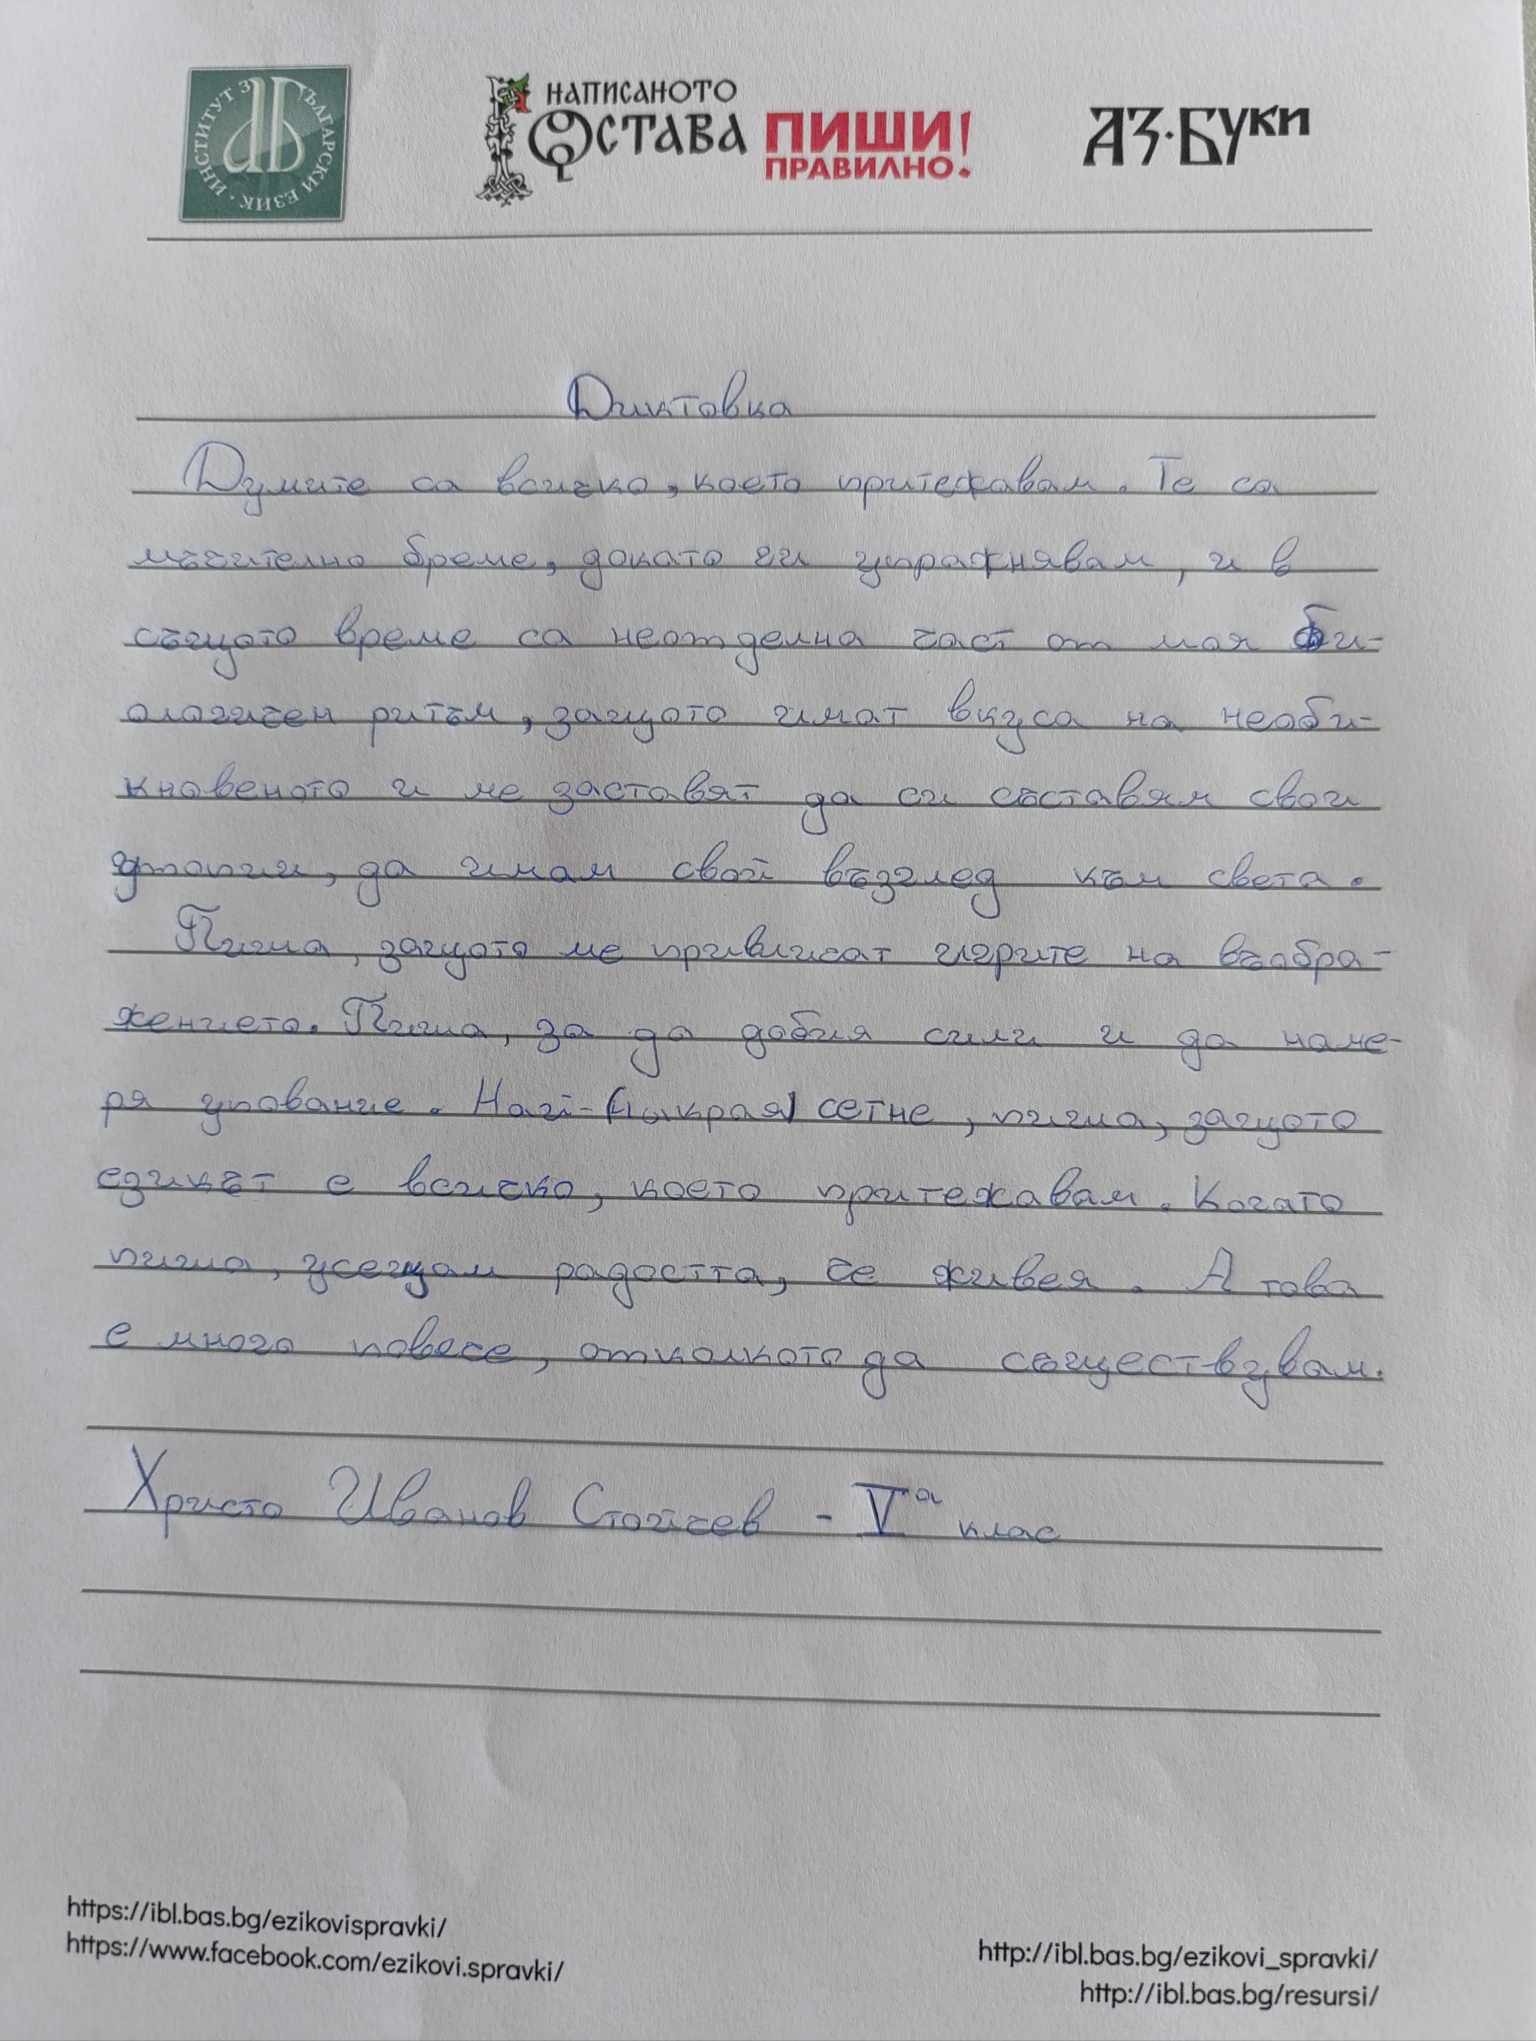 ИНСТИТУТ ЗА БЪЛГАРСКИ ЕЗИК
НАПИСАНОТО
ОСТАВА
ПИШИ
ПРАВИЛНО!
АЗ·БУКИ
Диктовка
Думите са всичко, което притежавам. Те са
мъчително бреме, докато ги упражнявам, и в
същото време са неотделна част от моя би-
ологичен ритъм, защото имат вкуса на необи-
кновеното и ме заставят да си съставям свои
утопии, да имам свой възглед към света.
Пиша, защото ме привличат игрите на въобра-
жението. Пиша, за да добия сили и да наме-
ря упование. Най- сетне, пиша, защото
езикът е всичко, което притежавам. Когато
пиша, усещам радостта, че живея. А това
е много повече, отколкото да съществувам.
Христо Иванов Стойчев - Vа клас
https://ibl.bas.bg/ezikovispravki/
https://www.facebook.com/ezikovi.spravki/
http://ibl.bas.bg/ezikovi_spravki/
http://ibl.bas.bg/resursi/